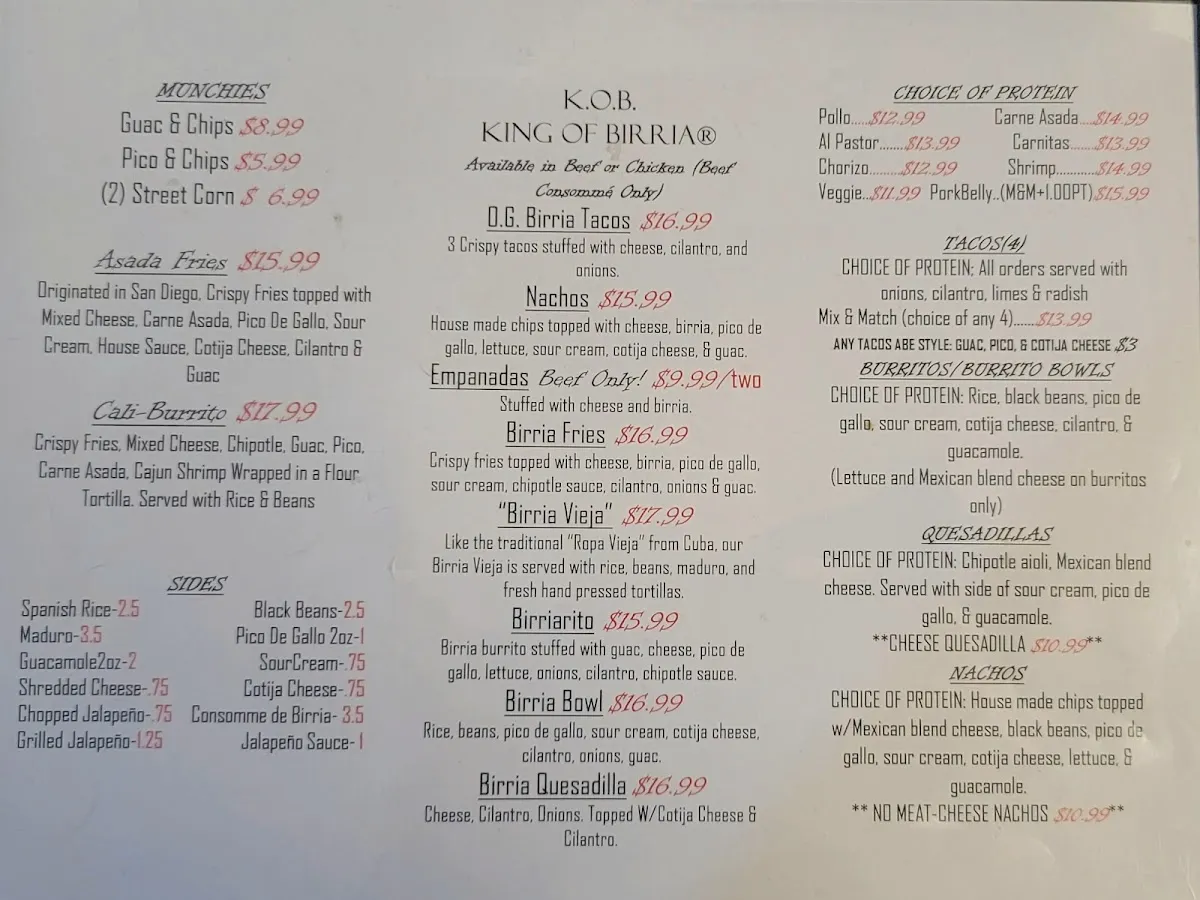 MUNCHIES
Guac & Chips $8.99
Pico & Chips $5.99
(2) Street Corn $ 6.99
Asada Fries $15.99
Originated in San Diego, Crispy Fries topped with
Mixed Cheese, Carne Asada, Pico De Gallo, Sour
Cream, House Sauce, Cotija Cheese, Cilantro &
Guac
Cali-Burrito $17.99
Crispy Fries, Mixed Cheese, Chipotle, Guac, Pico,
Carne Asada, Cajun Shrimp Wrapped in a Flour
Tortilla. Served with Rice & Beans
SIDES
Spanish Rice-2.5 Black Beans-2.5
Maduro-3.5 Pico De Gallo 2oz-1
Guacamole2oz-2 SourCream-.75
Shredded Cheese-.75 Cotija Cheese-.75
Chopped Jalapeño-.75 Consomme de Birria- 3.5
Grilled Jalapeño-1.25 Jalapeño Sauce-1
K.O.B.
KING OF BIRRIA®
Available in Beef or Chicken (Beef
Consommé Only)
O.G. Birria Tacos $16.99
3 Crispy tacos stuffed with cheese, cilantro, and
onions.
Nachos $15.99
House made chips topped with cheese, birria, pico de
gallo, lettuce, sour cream, cotija cheese, & guac.
Empanadas Beef Only! $9.99/two
Stuffed with cheese and birria.
Birria Fries $16.99
Crispy fries topped with cheese, birria, pico de gallo,
sour cream, chipotle sauce, cilantro, onions & guac.
"Birria Vieja" $17.99
Like the traditional "Ropa Vieja" from Cuba, our
Birria Vieja is served with rice, beans, maduro, and
fresh hand pressed tortillas.
Birriarito $15.99
Birria burrito stuffed with guac, cheese, pico de
gallo, lettuce, onions, cilantro, chipotle sauce.
Birria Bowl $16.99
Rice, beans, pico de gallo, sour cream, cotija cheese,
cilantro, onions, guac.
Birria Quesadilla $16.99
Cheese, Cilantro, Onions. Topped W/Cotija Cheese &
Cilantro.
CHOICE OF PROTEIN
Pollo.....$12.99 Carne Asada....$14.99
Al Pastor.......$13.99 Carnitas.......$13.99
Chorizo.........$12.99 Shrimp...........$14.99
Veggie..$11.99 PorkBelly..(M&M+1.00PT)$15.99
TACOS(4)
CHOICE OF PROTEIN; All orders served with
onions, cilantro, limes & radish
Mix & Match (choice of any 4)......$13.99
ANY TACOS ABE STYLE: GUAC, PICO, & COTIJA CHEESE $3
BURRITOS/BURRITO BOWLS
CHOICE OF PROTEIN: Rice, black beans, pico de
gallo, sour cream, cotija cheese, cilantro, &
guacamole.
(Lettuce and Mexican blend cheese on burritos
only)
QUESADILLAS
CHOICE OF PROTEIN: Chipotle aioli, Mexican blend
cheese. Served with side of sour cream, pico de
gallo, & guacamole.
**CHEESE QUESADILLA $10.99**
NACHOS
CHOICE OF PROTEIN: House made chips topped
w/Mexican blend cheese, black beans, pico de
gallo, sour cream, cotija cheese, lettuce, &
guacamole.
** NO MEAT-CHEESE NACHOS $10.99**